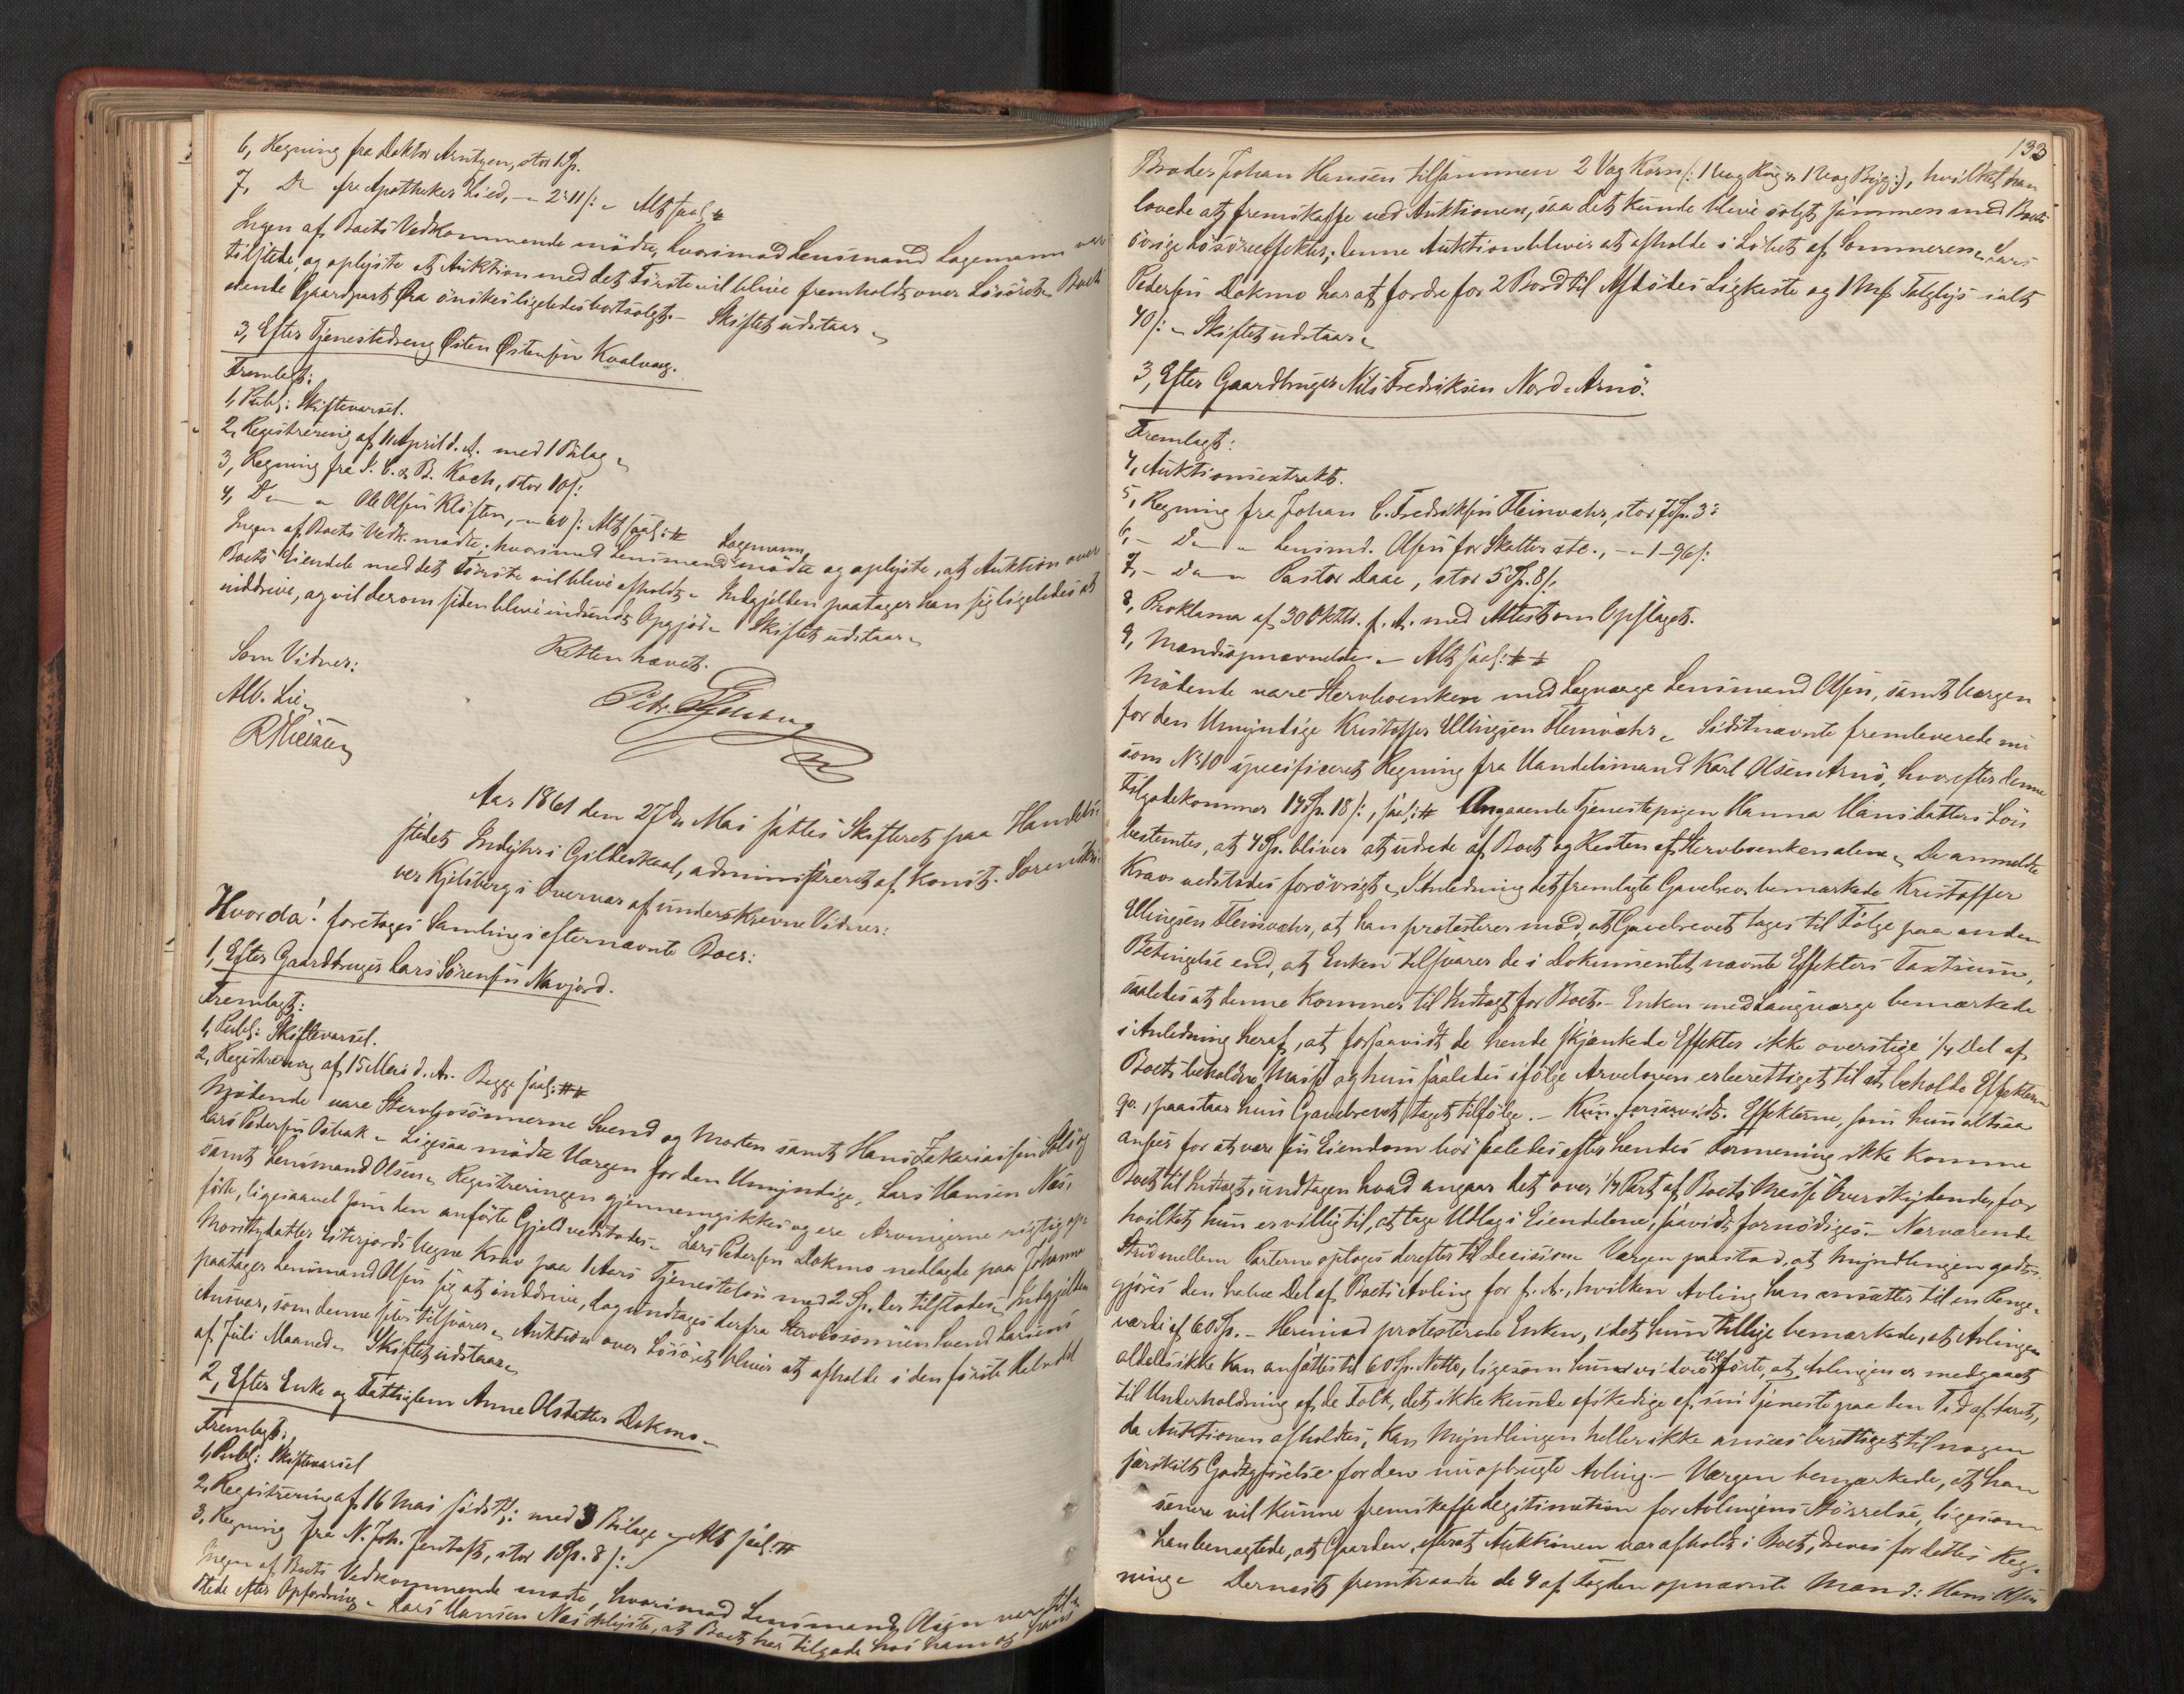 6, Regning fra Doktor Arntzen, stor 1 Sp.
7, Do fra Apotheker Lied, — 2" 11 /: — Alt saal:
Ingen af Boets Vedkommende mödte, hvorimod Lensmand Lagemann var
tilstede, og oplyste at Auktion med det Förste vil blive fremholdt over Lösöret. Boets
Gaardpart Øra önskes ligeledes bortsolgt. — Skiftet udstaar.
3, Efter Tjenestedreng Østen Østensen Kvalvaag.
Fremlagt:
1, Publ: Skiftevarsel.
2, Registrering af 11 April d. A. med 1 Bilag.
3, Regning fra J. C. & B. Koch, stor 10 /:
4, Do " Ole Olsen Klöften, — 60 /: Alt saal:
Lagemann
Ingen af Boets Vedk. mödte, hvorimod Lensmand mödte og oplyste, at Auktion over
Boets Eiendele med det Förste vil blive afholdt. Indgjelden paatager han sig ligeledes at
inddrive, og vil derom siden blive indsendt Opgjör. Skiftet udstaar.
Retten hævet.
Som Vidner:
Alb. Lie
Aar 1861 den 27de Mai sattes Skifteret paa Handels-
stedet Indyhr i Gildeskaal, administreret af Konst. Sorenskri-
ver Kjelsberg i Overvær af underskrevne Vidner:
Hvorda! foretoges Samling i efternævnte Boer:
1, Efter Gaardbruger Lars Sörensen Navjord.
Fremlagt:
1, Publ: Skiftevarsel.
2, Registrering af 15 Mai d. A. Begge saal:
Mödende vare Stervbosönnerne Svend og Morten samt Hans Zakariassen
Lars Pedersen Ligesaa mödte Værgen for den Umyndige, Lars Hansen Næs,
samt Lensmand Olsen. Registreringen gjennemgikkes og ere Arvingerne rigtig op-
förte, ligesaavel som den anförte Gjeld vedtodes. Lars Pedersen Dokmo nedlagde paa Johanna
Morithzdatter Vegne Krav paa 1 Aars Tjenestelön med 2 Sp. der tilstodes. Indgjelden
paatager Lensmand Olsen sig at inddrive, dog undtages derfra Stervbosönnen Svend Larsens
Ansvar, som denne selv tilsvarer. Auktion over Lösöret bliver at afholde i den förste Halvdel
af Juli Maaned. Skiftet udstaar.
2, Efter Enke og Fattiglem Anne Olsdatter Dokmo.
Fremlagt:
1, Publ: Skiftevarsel
2, Registrering af 16 Mai sidstl: med 3 Bilage — Alt saal:
3, Regning fra N. Joh. Jentoft, stor 1 Sp. 8 /:
Ingen af Boets Vedkommende mödte, hvorimod Lensmand Olsen var til-
stede efter Opfordring. Lars Hansen Næs oplyste, at Boet har tilgode hos ham og hans
133
Broder Johan Hansen tilsammen 2 Vog Korn (: 1 Vog Rug & 1 Vog Byg :), hvilket han
lovede at fremskaffe ved Auktionen, saa det kunde blive solgt sammen med Boets
övrige Lösöreeffekter; denne Auktion bliver at afholde i Löbet af Sommeren. Lars
Pedersen Dokmo har at fordre for 2 Bord til Afdödes Ligkiste og 1 Mk Talglys ialt
40 /: — Skiftet udstaar.
3, Efter Gaardbruger Nils Fredriksen Nord-Arnö.
Fremlagt:
4, Auktionsextrakt.
5, Regning fra Johan C. Fredriksen Fleinvæhr, stor 7 Sp. 3"
6, — Do — Lensmd. Olsen for Skatter etc., — 1 — 96 /:
7, — Do — Pastor Daae, stor 5 Sp. 8 /:
8, Proklama af 30 Oktbr. f. A. med Attest om Opslaget.
9, Mandsopnævnelse. — Alt saal:
Mödende vare Stervboenken med Lagværge Lensmand Olsen, samt Værgen
for den Umyndige Kristoffer Ellingsen Fleinvæhr. Sidstnævnte fremleverede nu
som No 10 specificeret Regning fra Handelsmand Karl Olsen Arnö, hvorefter denne
tilgodekommer 14 Sp. 18 /:, saal: Angaaende Tjenestepigen Hanna Hansdatters Lön
bestemtes, at 4 Sp. bliver at udrede af Boet og Resten af Stervboenken alene. De anmeldte
Krav vedstodes forövrigt. I Anledning det fremlagte Gavebrev bemærkede Kristoffer
Ellingsen Fleinvæhr, at han protesterer mod at Gavebrevet tages til Fölge paa anden
Betingelse end, at Enken tilsvarer de i Dokumentet nævnte Effekters Taxtsum,
saaledes at denne kommer til Indtægt for Boet. — Enken med Laugværge bemærkede
i Anledning heraf, at forsaavidt de hende skjænkede Effekter ikke overstige 1/4 Del af
Boets beholdne Masse og hun saaledes ifölge Arveloven er berettiget til at beholde Effekterne
qv., paastaar hun Gavebrevet taget tilfölge. — Kun forsaavidt Effekterne, som hun altsaa
anser for at være sin Eiendom bör saaledes efter hendes Formening ikke komme
Boet til Indtægt, undtagen hvad angaar det over 1/4 Part af Boets Masse Overskydende, for
hvilket hun er villig til, at tage Udlæg i Eiendelene, saavidt fornödiges. — Nærværende
Strid mellem Parterne optages derefter til Decision. Værgen paastod, at Myndlingen godt-
gjöres den halve Del af Boets Avling for f. A., hvilken Avling han ansætter til en Penge-
værdi af 60 Sp. — Herimod protesterede Enken, idet hun tillige bemærkede, at Avlingen
aldeles ikke kan ansættes til 60 Sp. Netto, ligesom hun videre tilförte, at Avlingen er medgaaet
til Underholdning af de Folk, det ikke kunde afskedige af sin Tjeneste paa den Tid af Aaret,
da Auktionen afholdtes, kan Myndlingen heller ikke ansees berettiget til nogen
særskilt Godtgjörelse for den nu opbrugte Avling. — Værgen bemærkede, at han
senere vil kunne fremskaffe Legitimation for Avlingens Störrelse, ligesom
han benægtede, at Gaarden, efterat Auktionen var afholdt i Boet, dreves for dettes Reg-
ning. Dernæst fremtraadte de 4 af Fogden opnævnte Mænd: Hans Olsen